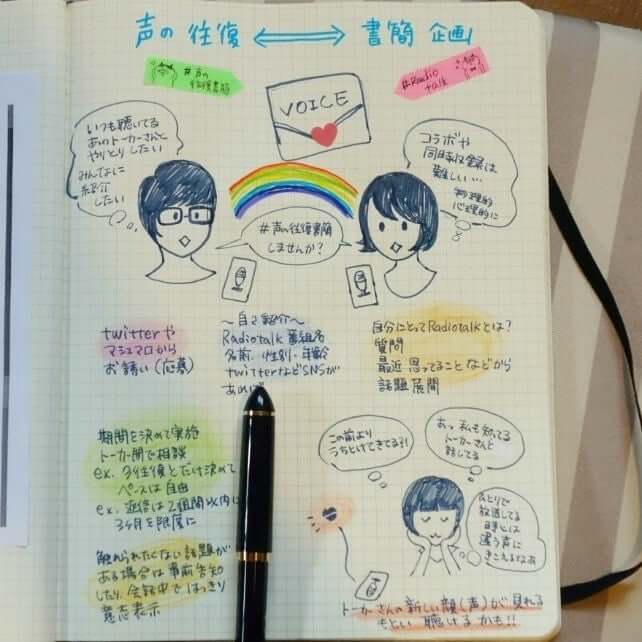 声の往復 ⟺ 書簡企画
#声の
往復書簡
#Radio
talk
VOICE
いつも聴いてる
あのトーカーさんと
やりとりしたい
みんなに
紹介
したい
コラボや
同時収録は
難しい…
物理的
心理的に
#声の往復書簡
しませんか?
twitterや
マシュマロから
お誘い(応募)
~自己紹介~
Radiotalk番組名
名前、性別・年齢
twitterなどSNSが
あれば
自分にとってRadiotalkとは?
質問
最近思ってることなどから
話題展開
期間を決めて実施
トーカー間で相談
ex. 多往復とだけ決めて
ペースは自由
ex. 返信は2週間以内に
3ヶ月を限度に
触れられたくない話題が
ある場合は事前告知
したり、会話中ではっきり
意志表示
この前より
うちとけてきてる?!
あっ私も知ってる
トーカーさんと
話してる
ひとりで
放送してる
時とは
違う声に
きこえるなあ
トーカーさんの新しい顔(声)が見れる
もとい聴けるかも!!